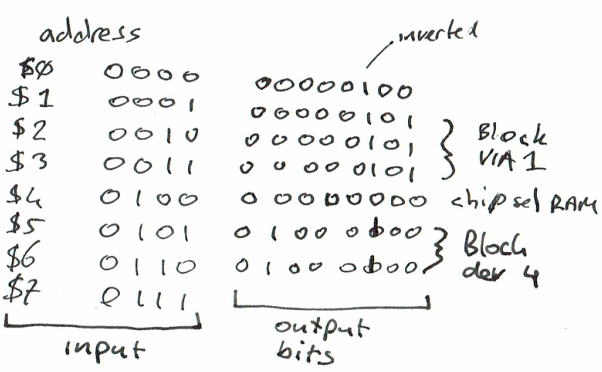 address
inverted
$0 0000 00000100
$1 0001 00000101
$2 0010 00000101
$3 0011 00000101
Block
VIA1
$4 0100 00000000 chipsel RAM
$5 0101 01000000
$6 0110 01000000
Block
dev 4
$7 0111
input
output
bits